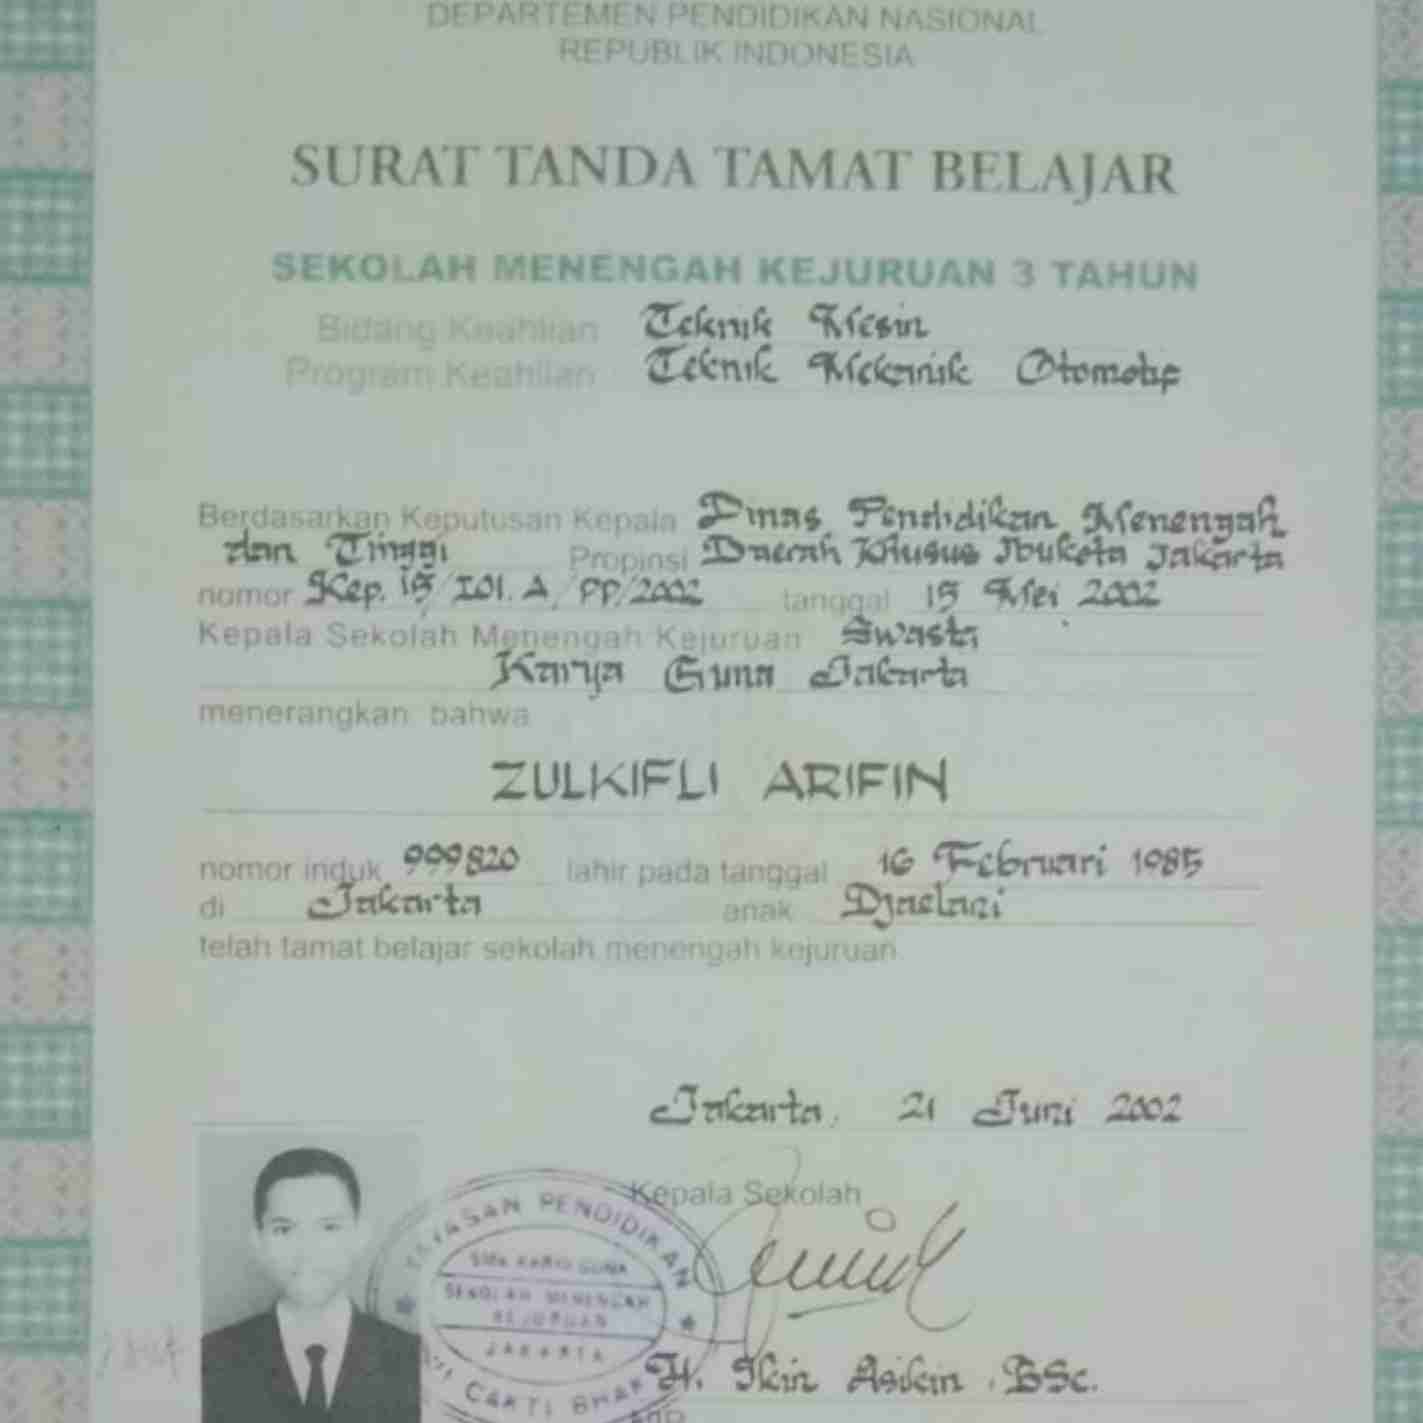 DEPARTEMEN PENDIDIKAN NASIONAL
REPUBLIK INDONESIA
SURAT TANDA TAMAT BELAJAR
SEKOLAH MENENGAH KEJURUAN 3 TAHUN
Bidang Keahlian Teknik Mesin
Program Keahlian Teknik Mekanik Otomotif
Berdasarkan Keputusan Kepala Dinas Pendidikan Menengah
dan Tinggi Propinsi Daerah Khusus Ibukota Jakarta
nomor Kep. 15/I01.A/PP/2002 tanggal 15 Mei 2002
Kepala Sekolah Menengah Kejuruan Swasta
Karya Guna Jakarta
menerangkan bahwa
ZULKIFLI ARIFIN
nomor induk 999820 lahir pada tanggal 16 Februari 1985
di Jakarta anak Djaelani
telah tamat belajar sekolah menengah kejuruan
Jakarta, 21 Juni 2002
Kepala Sekolah
YAYASAN PENDIDIKAN
SMK KARYA GUNA
SEKOLAH MENENGAH
KEJURUAN
JAKARTA
CAKTI
H. Ikin Asikin . BSc.